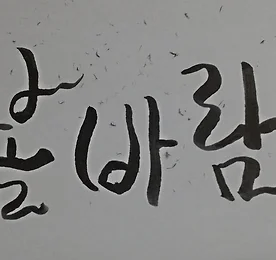 솔바람